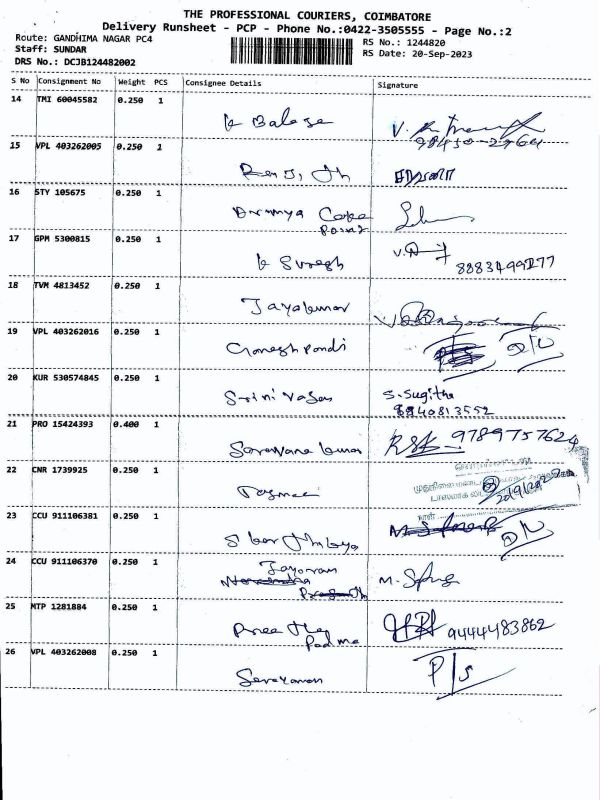 THE PROFESSIONAL COURIERS, COIMBATORE
Delivery Runsheet - PCP - Phone No.:0422-3505555 - Page No.:2
Route: GANDHIMA NAGAR PC4
RS No.: 1244820
Staff: SUNDAR
RS Date: 20-Sep-2023
DRS No.: DCJB124482002
S No Consignment No Weight PCS Consignee Details Signature
14 TMI 60045582 0.250 1
k Balaga
98430-2764
15 VPL 403262005 0.250 1
16 STY 105675 0.250 1
Cake
Point
17 GPM 5300815 0.250 1
k Suresh
8883499277
18 TVM 4813452 0.250 1
Jayakumar
19 VPL 403262016 0.250 1
Ganesh Pandi
D/L
20 KUR 530574845 0.250 1
Srinivasan S. Sugitha
8940813552
21 PRO 15424393 0.400 1
Saravana kumar 9789757624
22 CNR 1739925 0.250 1
Tasmac
23 CCU 911106381 0.250 1
D/L
24 CCU 911106370 0.250 1
Jayaram
25 MTP 1281884 0.250 1
Preetha 9444483862
Padma
26 VPL 403262008 0.250 1
Saravanan P/S